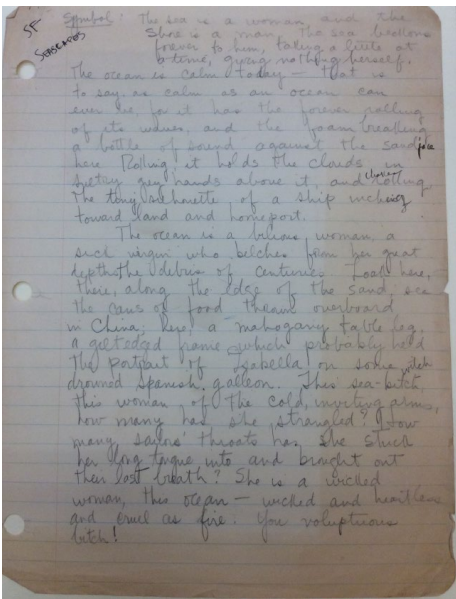 SF
Seascapes
Symbol: The sea is a woman, and the
shore is a man. The sea beckons
forever to him, taking a little at
a time, giving nothing herself.
The ocean is calm today — that is
to say, as calm as an ocean can
ever be, for it has the forever rolling
of its waves, and the foam breaking
a bottle of sound against the sand
here. Rolling it holds the clouds in
grey hands above it and rolling
The tiny silhouette of a ship inching
toward land and homeport.
The ocean is a bilious woman, a
sick virgin who belches from her great
depths the debris of centuries. Look here,
there, along the edge of the sand, see
the cans of food thrown overboard
in China; here, a mahogany table leg,
a giltedged frame which probably held
the portrait of Isabella on some
drowned Spanish galleon. This sea-bitch,
this woman of the cold, inviting arms,
how many has she strangled? How
many sailors' throats has she stuck
her long tongue into and brought out
their last breath? She is a wicked
woman, this ocean — wicked and heartless
and cruel as fire. You voluptuous
bitch!